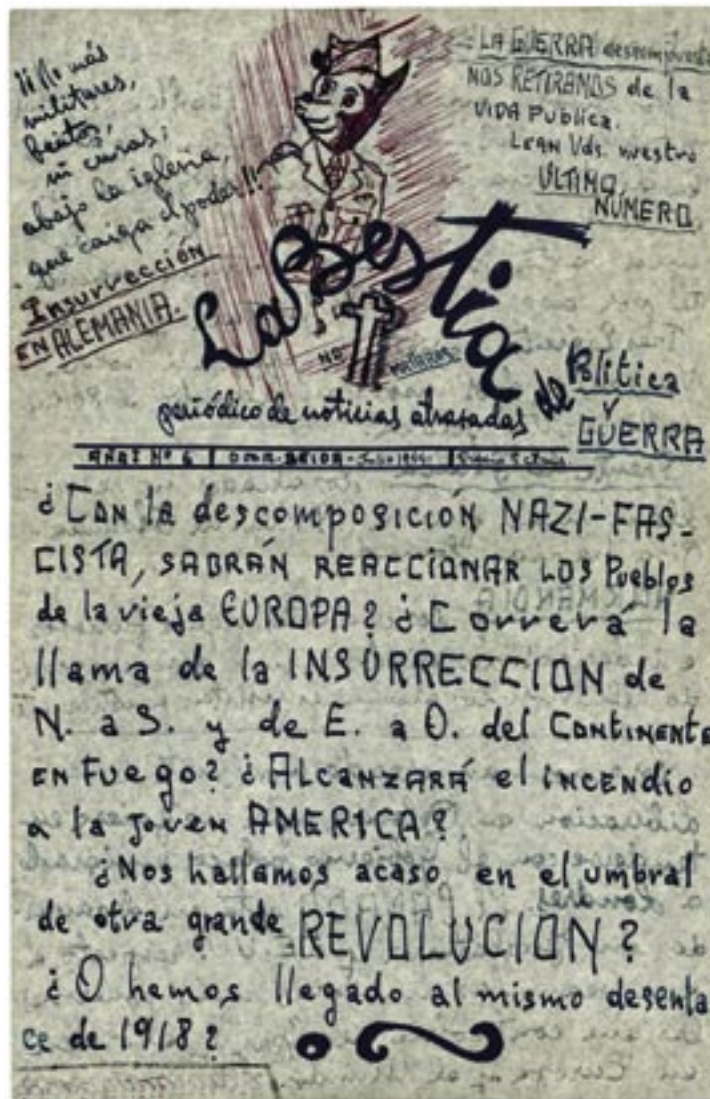 ¡¡No más
militares,
ni curas;
abajo la iglesia,
que caiga el poder!!
Insurrección
EN ALEMANIA.
LA GUERRA descompuesta
NOS RETIRAMOS de la
VIDA Publica.
LEAN Vds. nuestro
ULTIMO
NÚMERO
La Bestia
NO MATARAS
de Politica
y
GUERRA
periódico de noticias atrasadas
AÑO I Nº 6
¿CON la descomposición NAZI-FAS-
CISTA, SABRÁN REACCIONAR LOS Pueblos
de la vieja EUROPA? ¿Correrá la
llama de la INSURRECCION de
N. a S. y de E. a O. del CONTINENTE
EN Fuego? ¿ALCANZARÁ el INCENDIO
a la Joven AMERICA?
¿Nos hallamos acaso en el umbral
de otra grande REVOLUCION?
¿O hemos llegado al mismo desenla
ce de 1918?